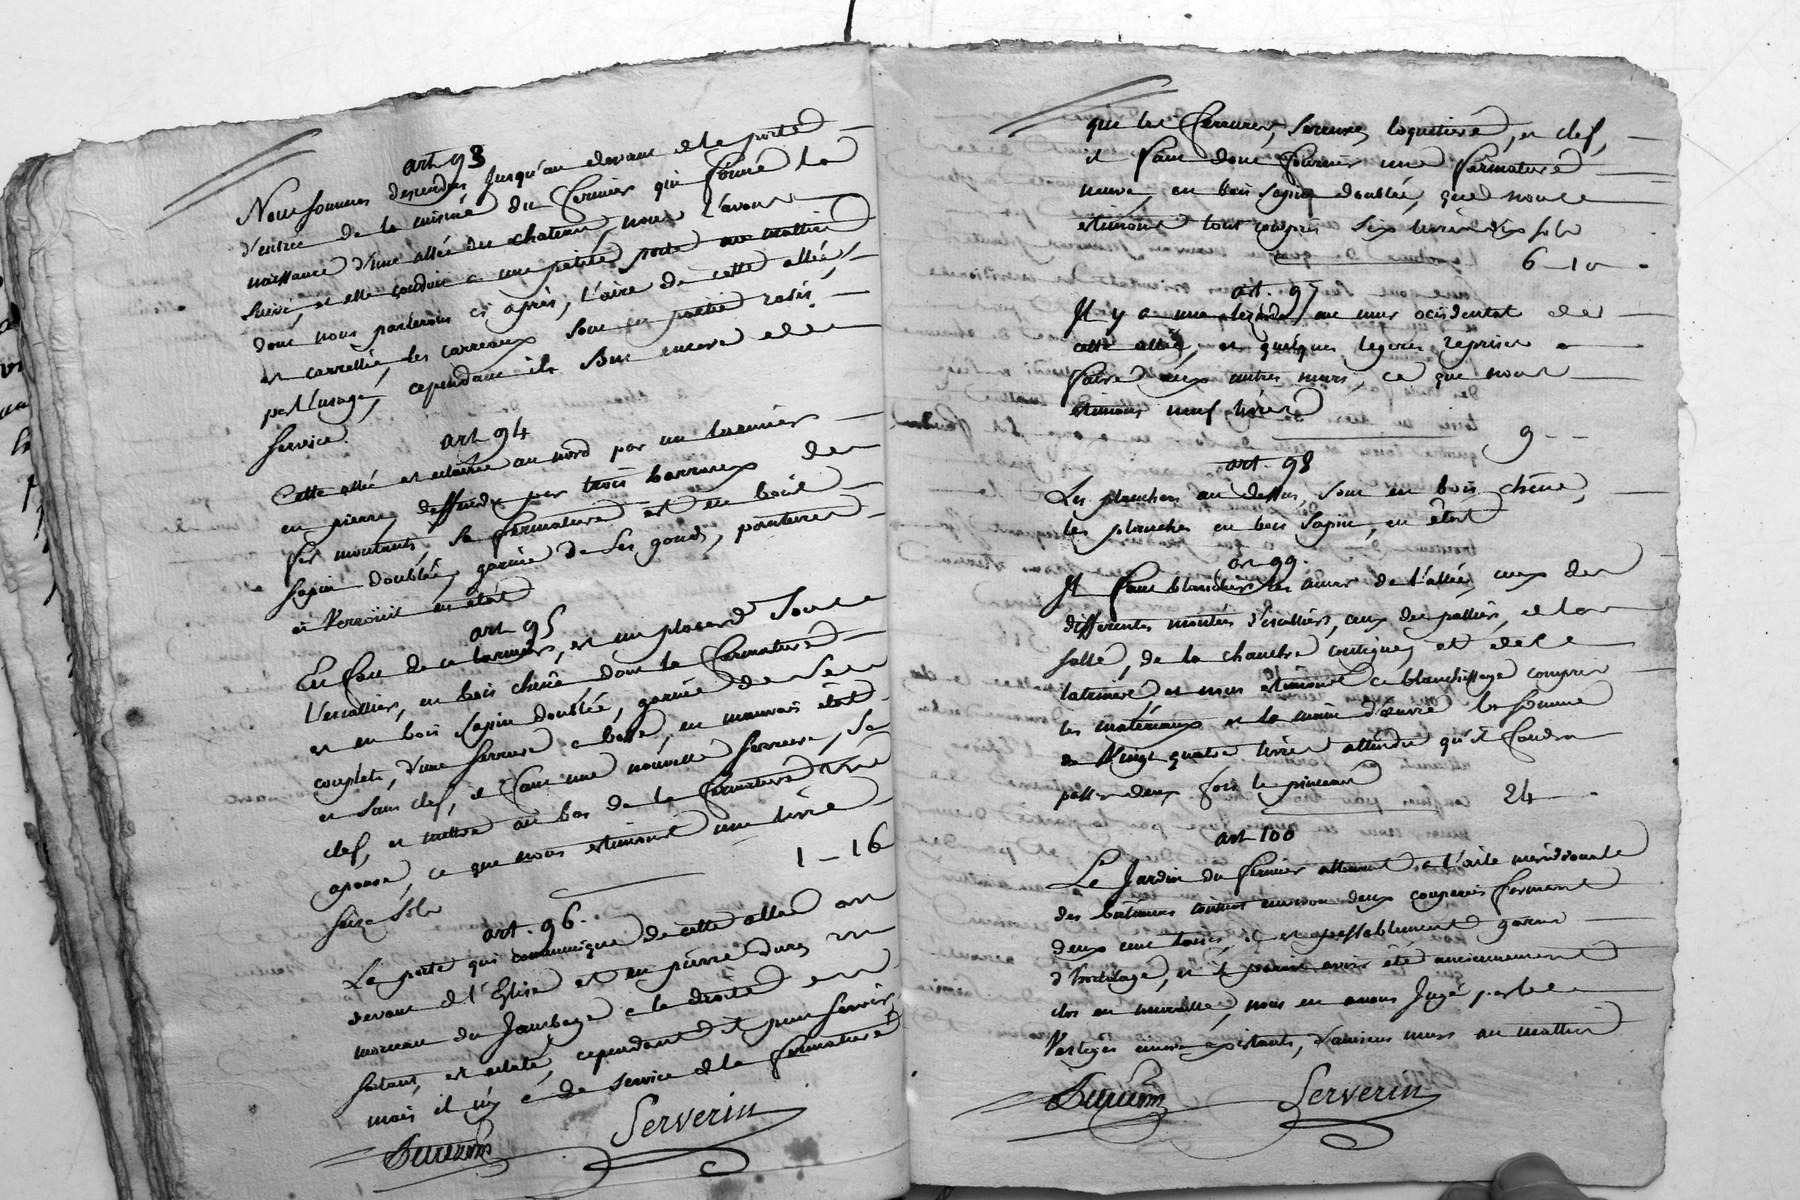 art 93
Nous sommes descendus jusqu'au devant de la porte
d'entrée de la cuisine du Fermier qui forme la
naissance d'une allée du chateau, nous l'avons
suivi, et elle conduit a une petite porte au mattin
dont nous parlerons cy après, l'aire de cette allée,
est carrellée, les carreaux sont en partie rasés
par l'usage, cependant ils sont encore de
service.
art 94
Cette allée est eclairée au nord par un larmier
en pierre deffendu par trois barreaux de
fer montants, sa fermature est en bois
sapin doublée, garnie de ses gonds, pantures
et verrouil en état
art 95
En face de ce larmier, est un placard sous
l'escallier, en bois chêne dont la fermature
est en bois sapin doublée, garnie de ses
couplets, d'une serrure a bosse, en mauvais état
et sans clef, il faut une nouvelle serrure, sa
clef, et mettre au bas de la fermature une
aponse, ce que nous estimons une livre
seize sols
1 - 16
art. 96.
La porte qui communique de cette allée au
devant de l'Eglise est en pierre dures un
morceau du jambage a la droite en
sortant, est eclaté, cependant il peut servir,
mais il n'y a de service de la fermature
Serverin
que les ferrures, serrures, loquetiere, et clef,
il faut donc fournir une fermature
neuve, en bois sapin doublée, que nous
estimons tout compris six livres dix sols
6 - 10
art. 97
Il y a une lezarde au mur occidental de
cette allée, et quelques legeres reprises a
faire aux autres murs, ce que nous
estimons neuf livres
9 - -
art. 98
Les planchers au dessus, sont en bois chêne,
les planches en bois sapin, en état
art 99.
Il faut blanchir les murs de l'allée, ceux des
differentes montées d'escalliers, ceux des palliers, de la
salle, de la chambre contigue, et de la
latrine et nous estimons ce blanchissage compris
les matériaux et la main d'œuvre la somme
de vingt quatre livres attendu qu'il faudra
passer deux fois le pinceau
24
art 100
Le Jardin du fermier attenant a l'aile méridionale
des batiments contient environ deux couperées formant
deux cent toises, il est passablement garni
d'hortolage, et il parait avoir été anciennement
clos en muraille, nous en avons jugé par les
vestiges encore existants, d'anciens murs au mattin
Serverin